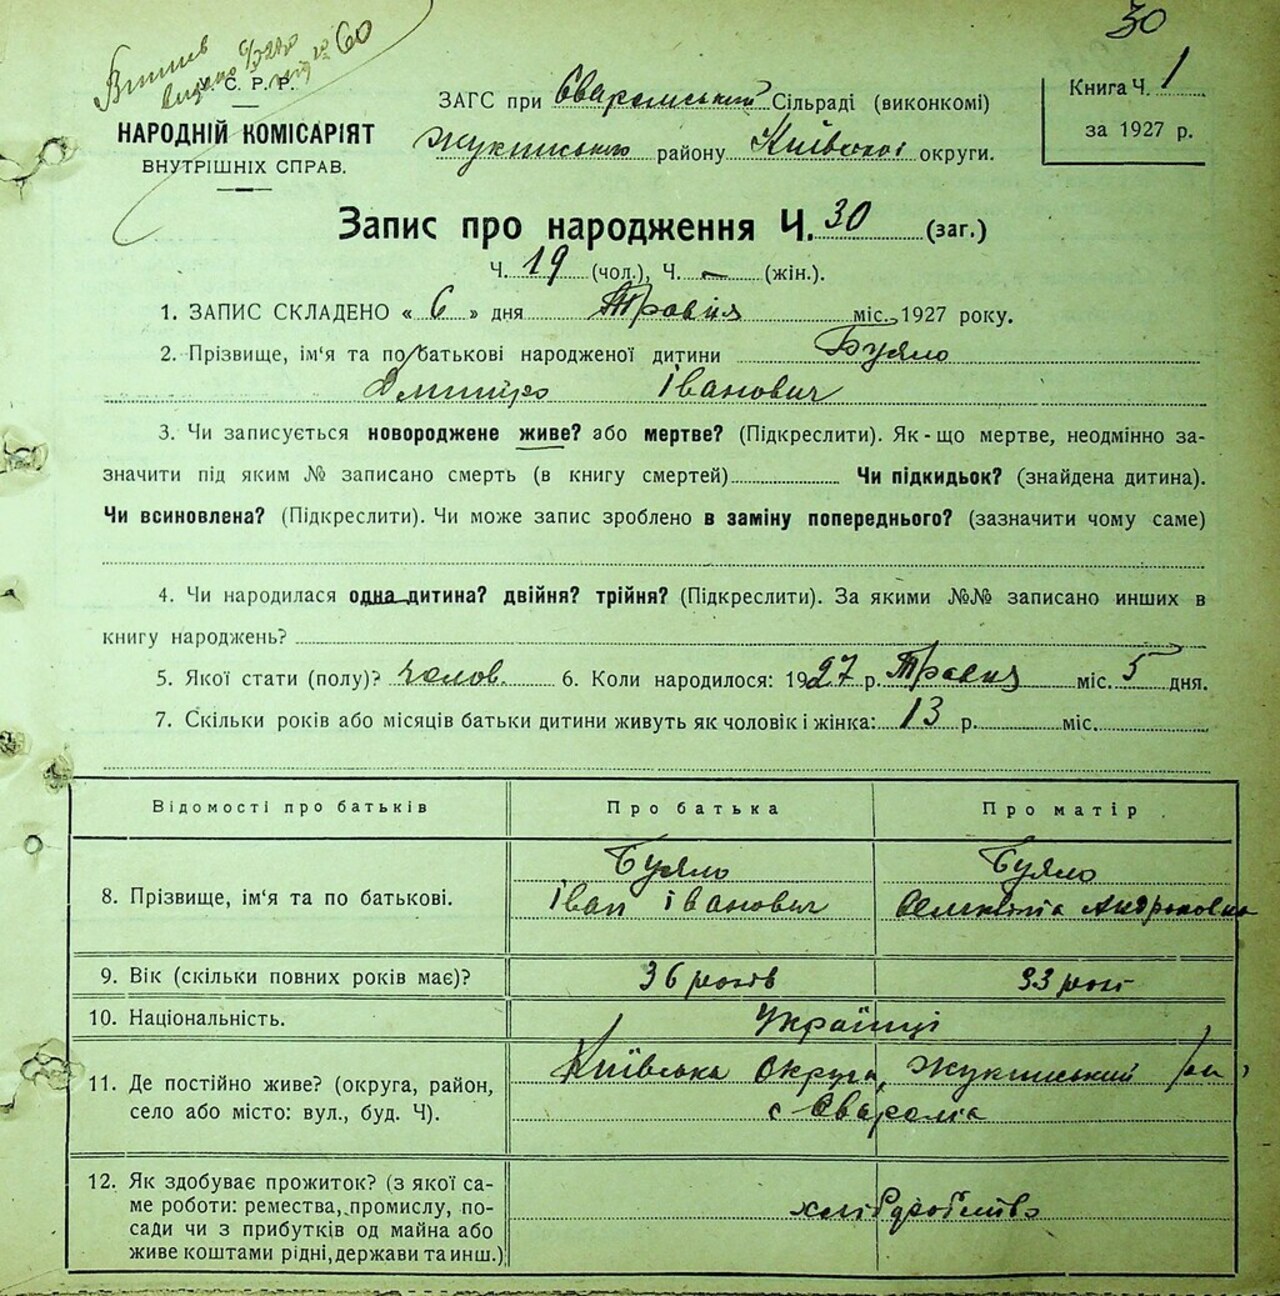 30
Витяг
видано
60
У. С. Р. Р.
НАРОДНІЙ КОМІСАРІЯТ
ВНУТРІШНІХ СПРАВ.
ЗАГС при Сваромський Сільраді (виконкомі)
Жукинського району Київської округи.
Книга Ч. 1
за 1927 р.
Запис про народження Ч. 30 (заг.)
Ч. 19 (чол.), Ч. – (жін.).
1. ЗАПИС СКЛАДЕНО « 6 » дня Травня міс. 1927 року.
2. Прізвище, ім'я та по батькові народженої дитини Буяло
Дмитро Іванович
3. Чи записується новороджене живе? або мертве? (Підкреслити). Як-що мертве, неодмінно за-
значити під яким № записано смерть (в книгу смертей) Чи підкидьок? (знайдена дитина).
Чи всиновлена? (Підкреслити). Чи може запис зроблено в заміну попереднього? (зазначити чому саме)
4. Чи народилася одна дитина? двійня? трійня? (Підкреслити). За якими №№ записано инших в
книгу народжень?
5. Якої стати (полу)? чолов. 6. Коли народилося: 1927 р. Травня міс. 5 дня.
7. Скільки років або місяців батьки дитини живуть як чоловік і жінка: 13 р. міс.
Відомості про батьків Про батька Про матір
8. Прізвище, ім'я та по батькові. Буяло Іван Іванович Буяло Андроновна
9. Вік (скільки повних років має)? 36 років 33 рокі
10. Національність. Українці
11. Де постійно живе? (округа, район, Київська округа, Жукинський
село або місто: вул., буд. Ч). с Сваромія
12. Як здобуває прожиток? (з якої са-
ме роботи: ремества, промислу, по- хліборобство
сади чи з прибутків од майна або
живе коштами рідні, держави та инш.)